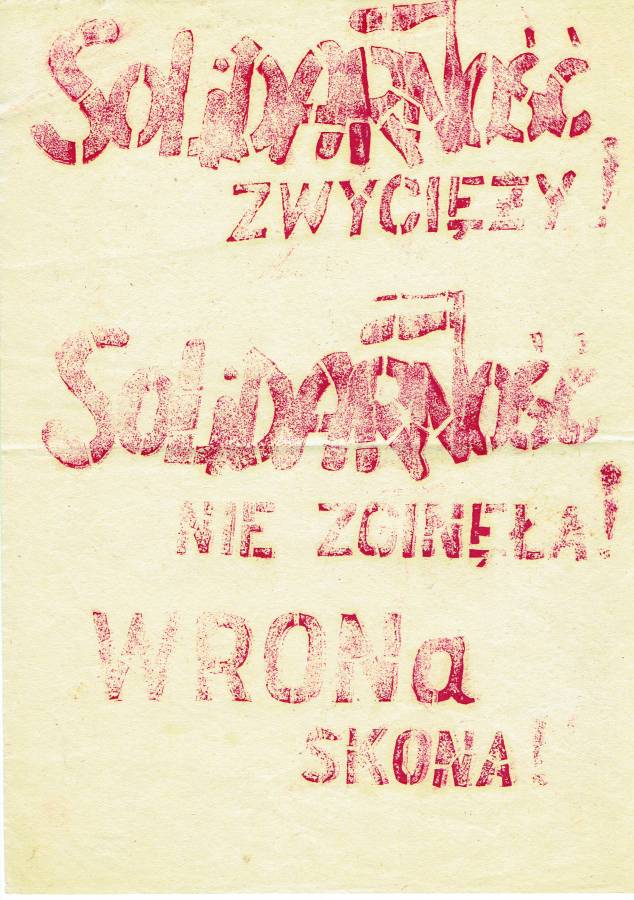 SoliDARNość
ZWYCIĘŻY!
SoliDARNość
NIE ZGINĘŁA!
WRONa
SKONA!